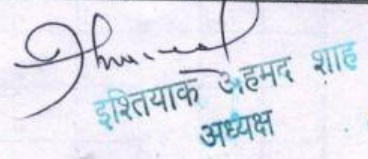 इश्तियाक अहमद शाह
अध्यक्ष